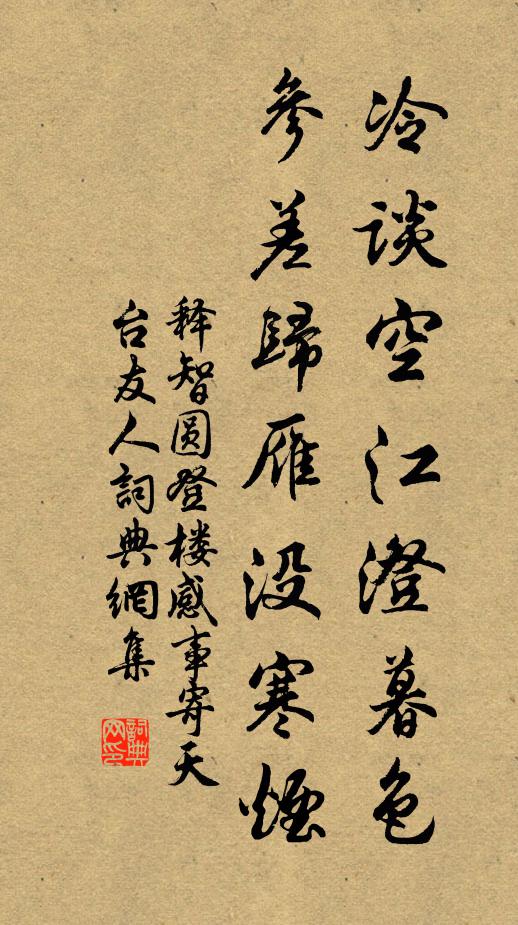 冷谈空江澄暮色
參差歸雁没寒煙
释智圆登楼感事寄天
台友人詞典網集
詞典
网印